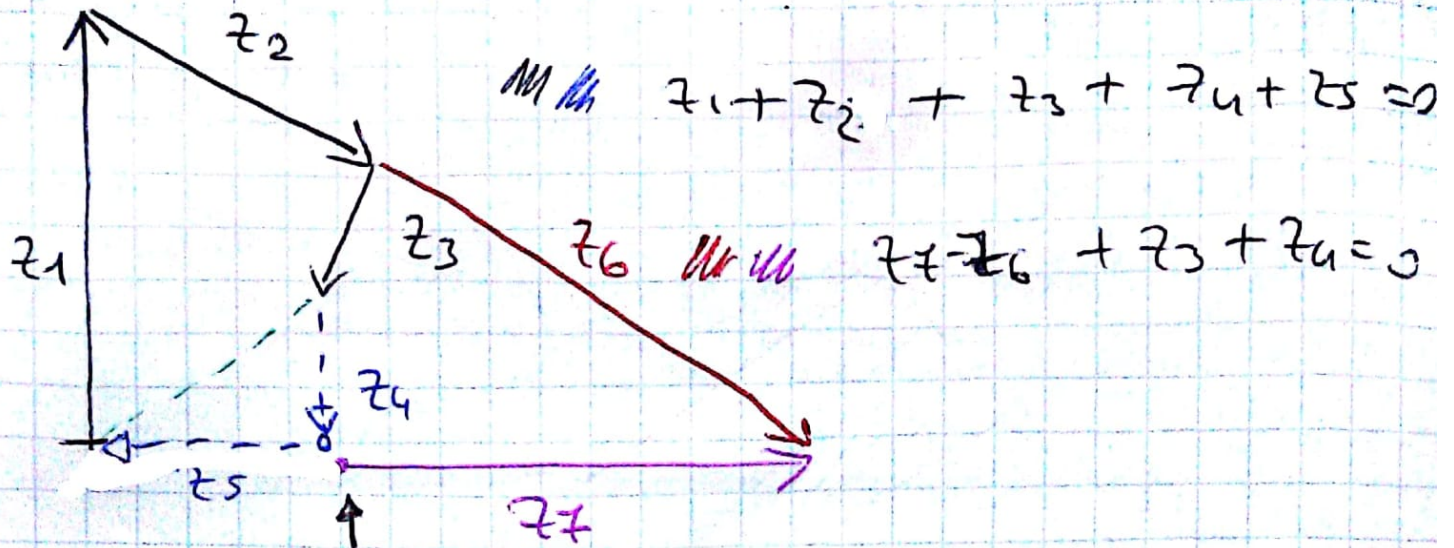 z2
z1 + z2 + z3 + z4 + z5 = 0
z1
z3
z6
z7 - z6 + z3 + z4 = 0
z4
z5
z7